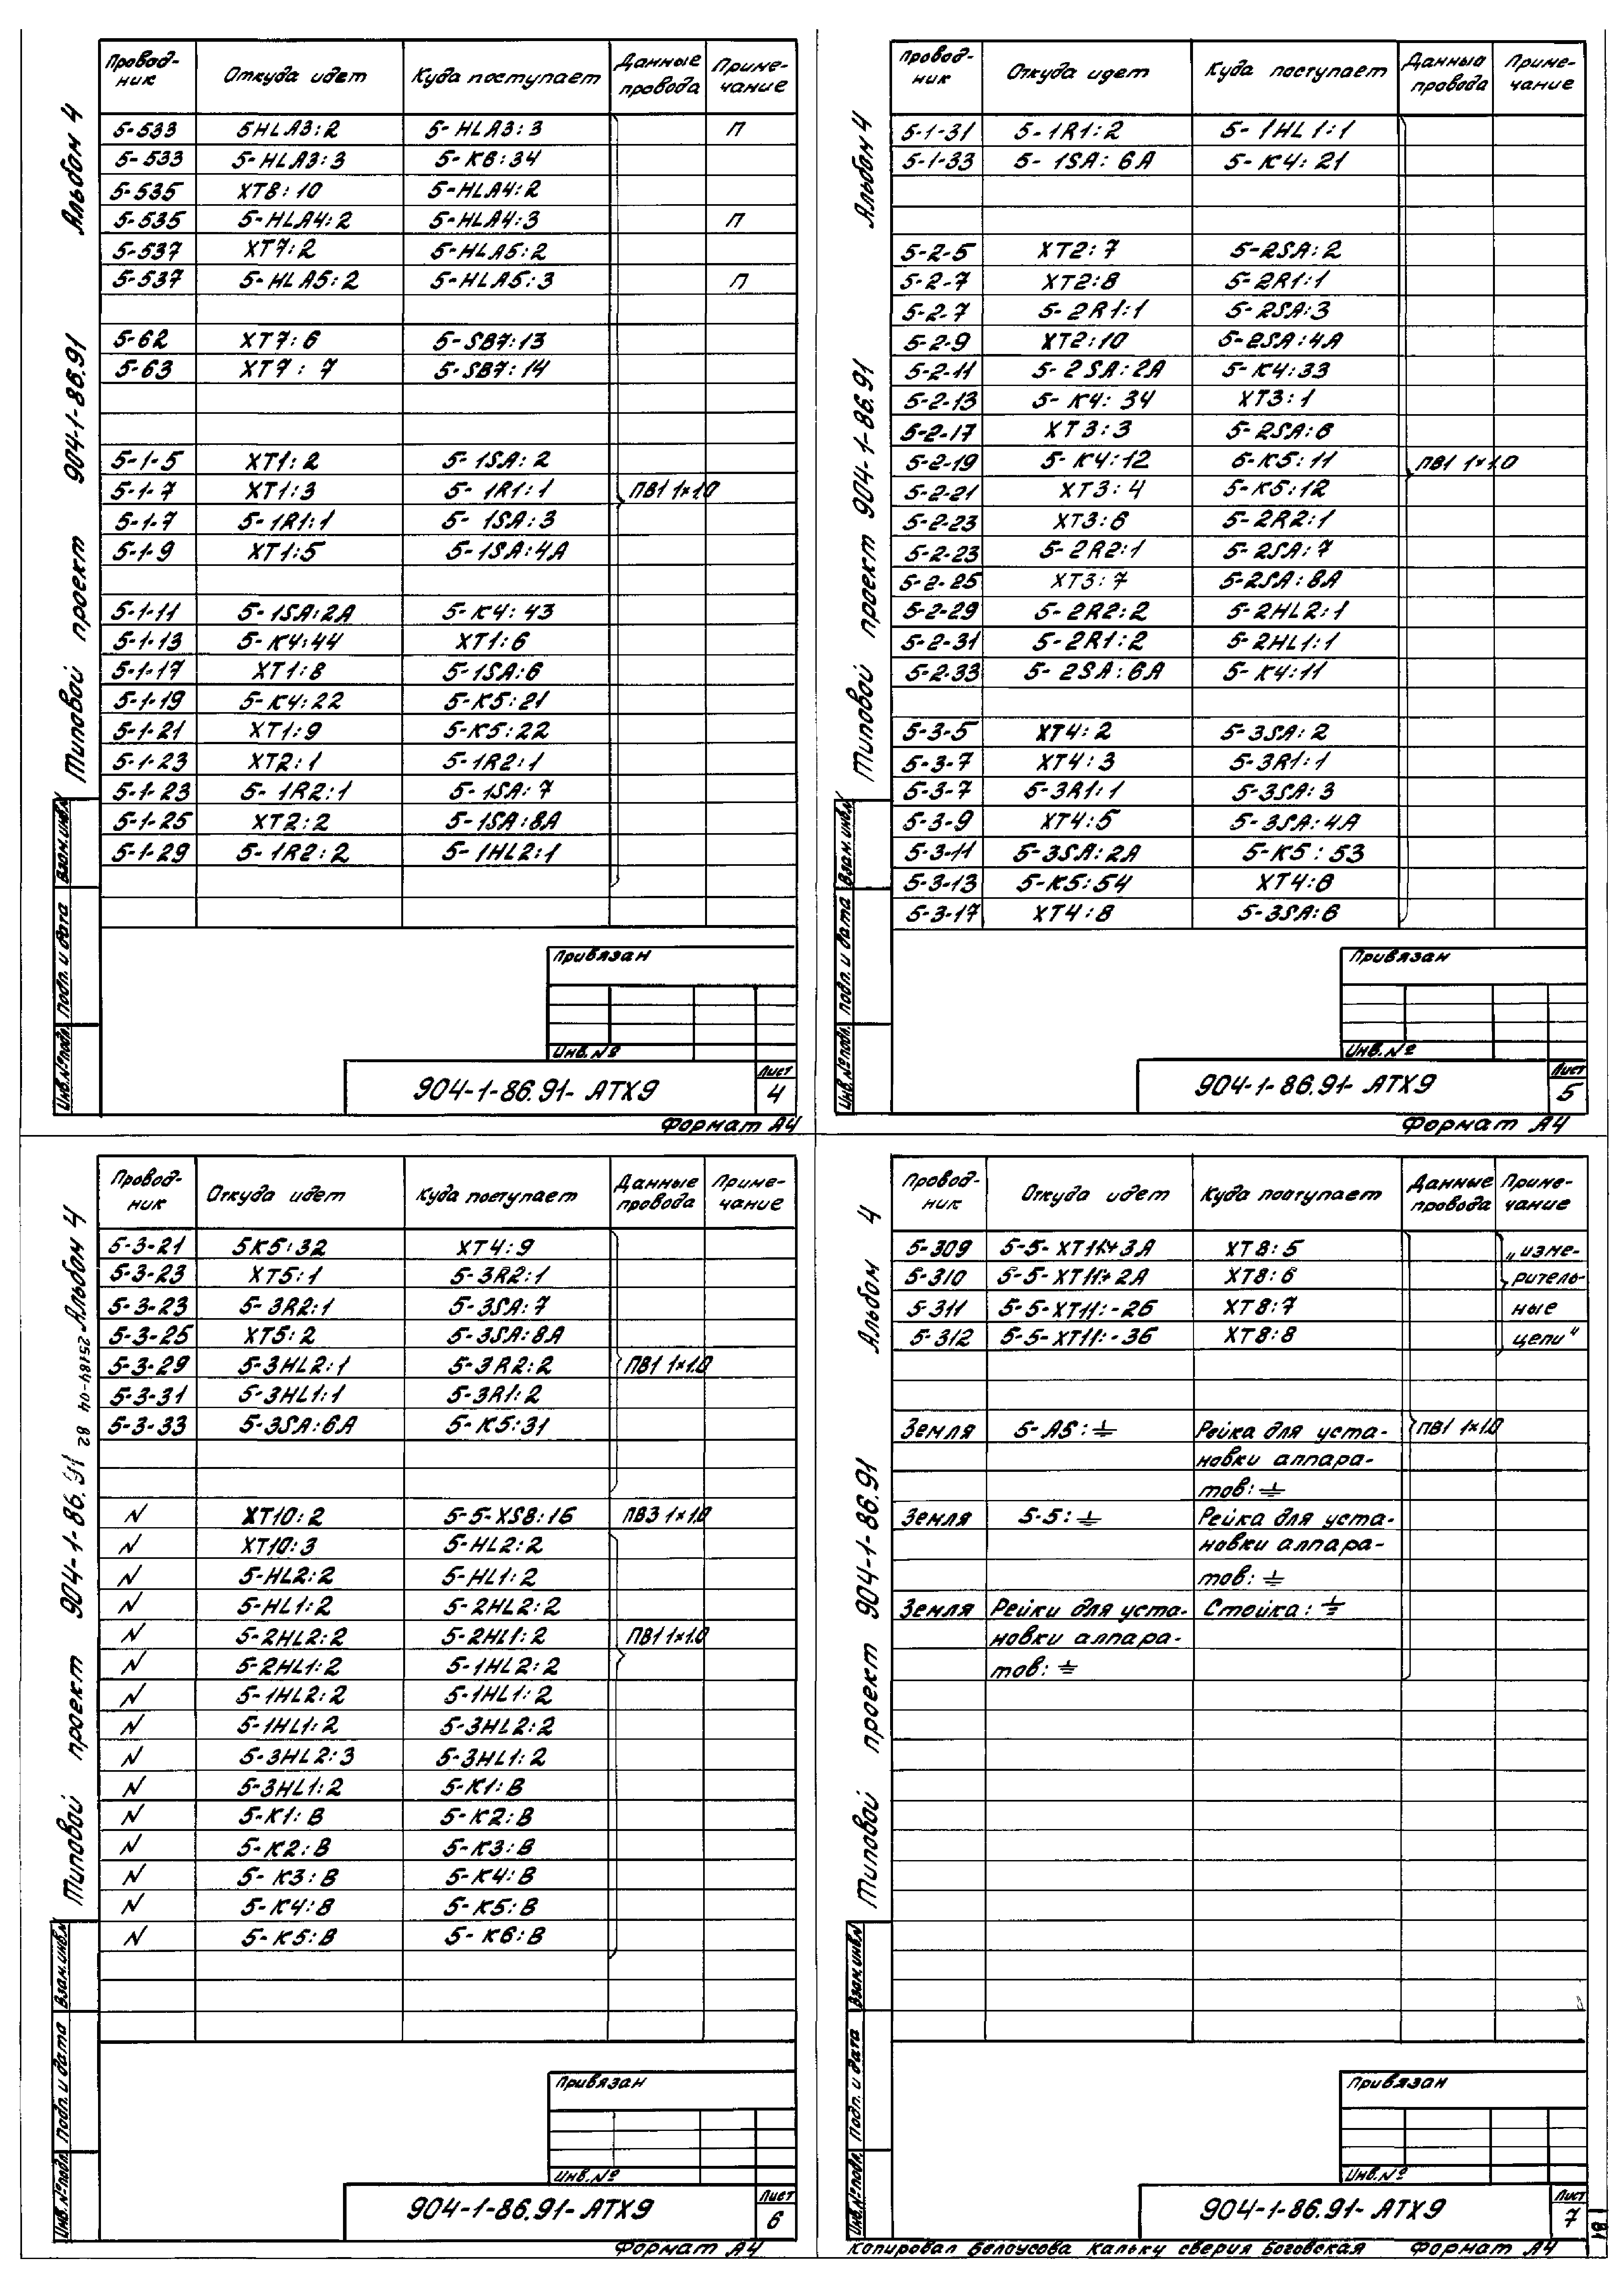 Альбом 4
Типовой проект 904-1-86.91
Провод- Откуда идет Куда поступает Данные Приме-
ник провода чание
5-533 5HLA3:2 5-HLA3:3 П
5-533 5-HLA3:3 5-К6:34
5-535 XT8:10 5-HLA4:2
5-535 5-HLA4:2 5-HLA4:3 П
5-537 XT7:2 5-HLA5:2
5-537 5-HLA5:2 5-HLA5:3 П
5-62 XT7:6 5-SB7:13
5-63 XT7:7 5-SB7:14
5-1-5 XT1:2 5-1SA:2
5-1-7 XT1:3 5-1R1:1 ПВ1 1×1.0
5-1-7 5-1R1:1 5-1SA:3
5-1-9 XT1:5 5-1SA:4A
5-1-11 5-1SA:2A 5-К4:43
5-1-13 5-К4:44 XT1:6
5-1-17 XT1:8 5-1SA:6
5-1-19 5-К4:22 5-К5:21
5-1-21 XT1:9 5-К5:22
5-1-23 XT2:1 5-1R2:1
5-1-23 5-1R2:1 5-1SA:7
5-1-25 XT2:2 5-1SA:8A
5-1-29 5-1R2:2 5-1HL2:1
Привязан
Инв.№
904-1-86.91-АТХ9 Лист
4
Формат А4
Инв.№подл. Подп. и дата Взам.инв.№
Альбом 4
Типовой проект 904-1-86.91
Провод- Откуда идет Куда поступает Данные Приме-
ник провода чание
5-1-31 5-1R1:2 5-1HL1:1
5-1-33 5-1SA:6A 5-К4:21
5-2-5 XT2:7 5-2SA:2
5-2-7 XT2:8 5-2R1:1
5-2-7 5-2R1:1 5-2SA:3
5-2-9 XT2:10 5-2SA:4A
5-2-11 5-2SA:2A 5-К4:33
5-2-13 5-К4:34 XT3:1
5-2-17 XT3:3 5-2SA:6
5-2-19 5-К4:12 5-К5:11 ПВ1 1×1.0
5-2-21 XT3:4 5-К5:12
5-2-23 XT3:6 5-2R2:1
5-2-23 5-2R2:1 5-2SA:7
5-2-25 XT3:7 5-2SA:8A
5-2-29 5-2R2:2 5-2HL2:1
5-2-31 5-2R1:2 5-2HL1:1
5-2-33 5-2SA:6A 5-К4:11
5-3-5 XT4:2 5-3SA:2
5-3-7 XT4:3 5-3R1:1
5-3-7 5-3R1:1 5-3SA:3
5-3-9 XT4:5 5-3SA:4A
5-3-11 5-3SA:2A 5-К5:53
5-3-13 5-К5:54 XT4:6
5-3-17 XT4:8 5-3SA:6
Привязан
Инв.№
904-1-86.91-АТХ9 Лист
5
Формат А4
Инв.№подл. Подп. и дата Взам.инв.№
Альбом 4
25184-04 82
Типовой проект 904-1-86.91
Провод- Откуда идет Куда поступает Данные Приме-
ник провода чание
5-3-21 5К5:32 XT4:9
5-3-23 XT5:1 5-3R2:1
5-3-23 5-3R2:1 5-3SA:7
5-3-25 XT5:2 5-3SA:8A
5-3-29 5-3HL2:1 5-3R2:2 ПВ1 1×1.0
5-3-31 5-3HL1:1 5-3R1:2
5-3-33 5-3SA:6A 5-К5:31
N XT10:2 5-5-XS8:16 ПВ3 1×1.0
N XT10:3 5-HL2:2
N 5-HL2:2 5-HL1:2
N 5-HL1:2 5-2HL2:2
N 5-2HL2:2 5-2HL1:2 ПВ1 1×1.0
N 5-2HL1:2 5-1HL2:2
N 5-1HL2:2 5-1HL1:2
N 5-1HL1:2 5-3HL2:2
N 5-3HL2:3 5-3HL1:2
N 5-3HL1:2 5-К1:В
N 5-К1:В 5-К2:В
N 5-К2:В 5-К3:В
N 5-К3:В 5-К4:В
N 5-К4:В 5-К5:В
N 5-К5:В 5-К6:В
Привязан
Инв.№
904-1-86.91-АТХ9 Лист
6
Формат А4
Инв.№подл. Подп. и дата Взам.инв.№
Альбом 4
Типовой проект 904-1-86.91
Провод- Откуда идет Куда поступает Данные Приме-
ник провода чание
5-309 XT8:5 „изме-
5-310 XT8:6 ритель-
5-311 5-5-XT11:-2б XT8:7 ные
5-312 5-5-XT11:-3б XT8:8 цепи"
Земля 5-А5:⏚ Рейка для уста- ПВ1 1×1.0
новки аппара-
тов:⏚
Земля 5-5:⏚ Рейка для уста-
новки аппара-
тов:⏚
Земля Рейки для уста- Стойка:⏚
новки аппара-
тов:⏚
Привязан
Инв.№
904-1-86.91-АТХ9 Лист
7
Копировал Белоусова Кальку сверил Боговская Формат А4
Инв.№подл. Подп. и дата Взам.инв.№
81